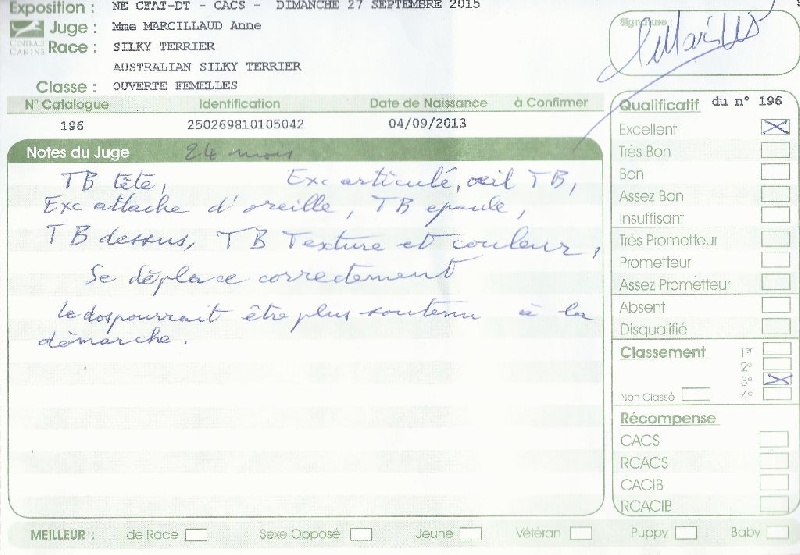 Exposition : NE CFAT-DT - CACS - DIMANCHE 27 SEPTEMBRE 2015
Juge : Mme MARCILLAUD Anne
Race : SILKY TERRIER
AUSTRALIAN SILKY TERRIER
Classe : OUVERTE FEMELLES
Signature
N° Catalogue Identification Date de Naissance à Confirmer
196 250269810105042 04/09/2013
Notes du Juge 24 mois
TB tête, Exc articulé, oeil TB,
Exc attache d'oreille, TB epaule,
TB dessus, TB Texture et couleur,
Se déplace correctement
Le dos pourrait être plus soutenu à la
démarche.
Qualificatif du n° 196
Excellent
Très Bon
Bon
Assez Bon
Insuffisant
Très Prometteur
Prometteur
Assez Prometteur
Absent
Disqualifié
Classement 1er
2e
3e
Non Classé 4e
Récompense
CACS
RCACS
CACIB
RCACIB
MEILLEUR : de Race Sexe Opposé Jeune Vétéran Puppy Baby